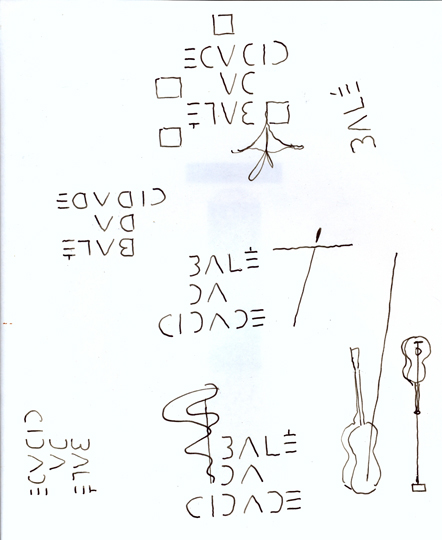 BALÉ
DA
CIDADE
BALÉ
BALÉ
DA
CIDADE
BALÉ
DA
CIDADE
BALÉ
DA
CIDADE
BALÉ
DA
CIDADE